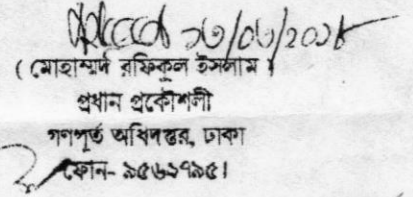 ( মোহাম্মদ রফিকুল ইসলাম )
প্রধান প্রকৌশলী
গণপূর্ত অধিদপ্তর, ঢাকা
ফোন- ৯৫৬২৭৯৫।